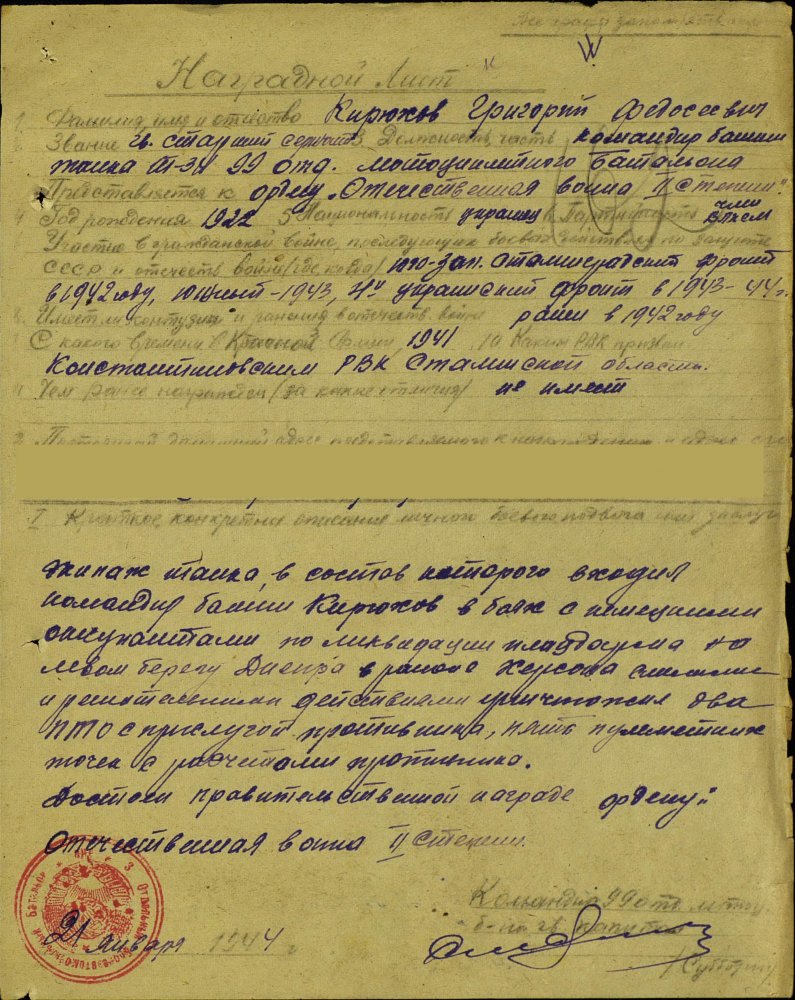 Наградной Лист
1. Фамилия, имя и отчество Кирюхов Григорий Федосеевич
Звание гв. старший сержант 3. Должность, часть командир башни
танка Т-34 99 отд. мотоциклетного батальона
Представляется к ордену "Отечественная война II степени".
4 Год рождения 1922 5 Национальность украинец 6 Партийность член ВЛКСМ
Участие в гражданской войне, последующих боевых действиях по защите
СССР и отечеств войне (где, когда) юго-зап. Сталинградский фронт
в 1942 году, Южный - 1943, 4й украинский фронт в 1943-44 г.
Имеет ли контузии и ранения в отечеств. войне ранен в 1942 году
9 С какого времени в Красной Армии 1941 10 Каким РВК призван
Константиновским РВК Сталинской области.
11 Чем ранее награжден (за какие отличия) не имеет
I Краткое, конкретное описание личного боевого подвига или заслуг
экипаж танка, в состав которого входил
командир башни Кирюхов в боях с немецкими
оккупантами по ликвидации плацдарма на
левом берегу Днепра в районе Херсона смелыми
и решительными действиями уничтожил два
ПТО с прислугой противника, пять пулеметных
точек с расчетами противника.
Достоин правительственной награде ордену "
Отечественная война II степени.
Командир 99 отд. мотоц.
б-на гв. капитан
21 января 1944 г